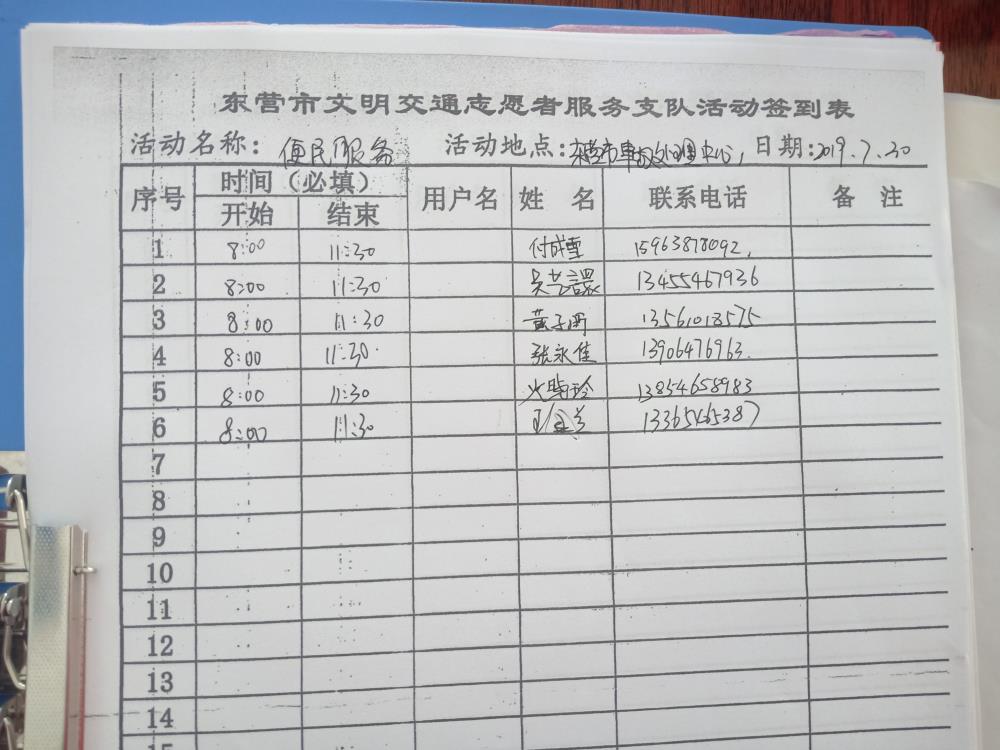 东营市文明交通志愿者服务支队活动签到表
活动名称：便民服务 活动地点：东营市事故处理中心, 日期：2019.7.30
序号 时间（必填） 用户名 姓 名 联系电话 备 注
开始 结束
1 8:00 11:30 付成雪 15963878092.
2 8:00 11:30 吴艺 13455467936
3 8:00 11:30 黄子雨 13561018575
4 8:00 11:30 张永佳 13906476963.
5 8:00 11:30 玲 13854658983
6 8:00 11:30 13365465387
7
8
9
10
11
12
13
14
15